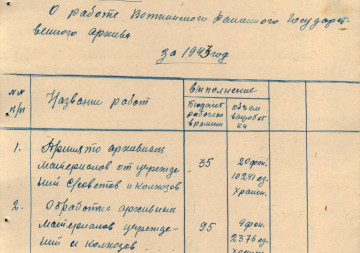 О работе Воткинского филиального Государст-
венного архива
за 1943 год
№№ п/п
Название работ
выполнение
Бюджет рабочего времени
объем выработ ки
1. Принято архивных
материалов от учрежде-
ний Советов и колхозов
35
20 фон.
10241 ед.
хранен.
2. Обработано архивных
материалов учрежде-
ний и колхозов
95
9 фон.
2376 ед.